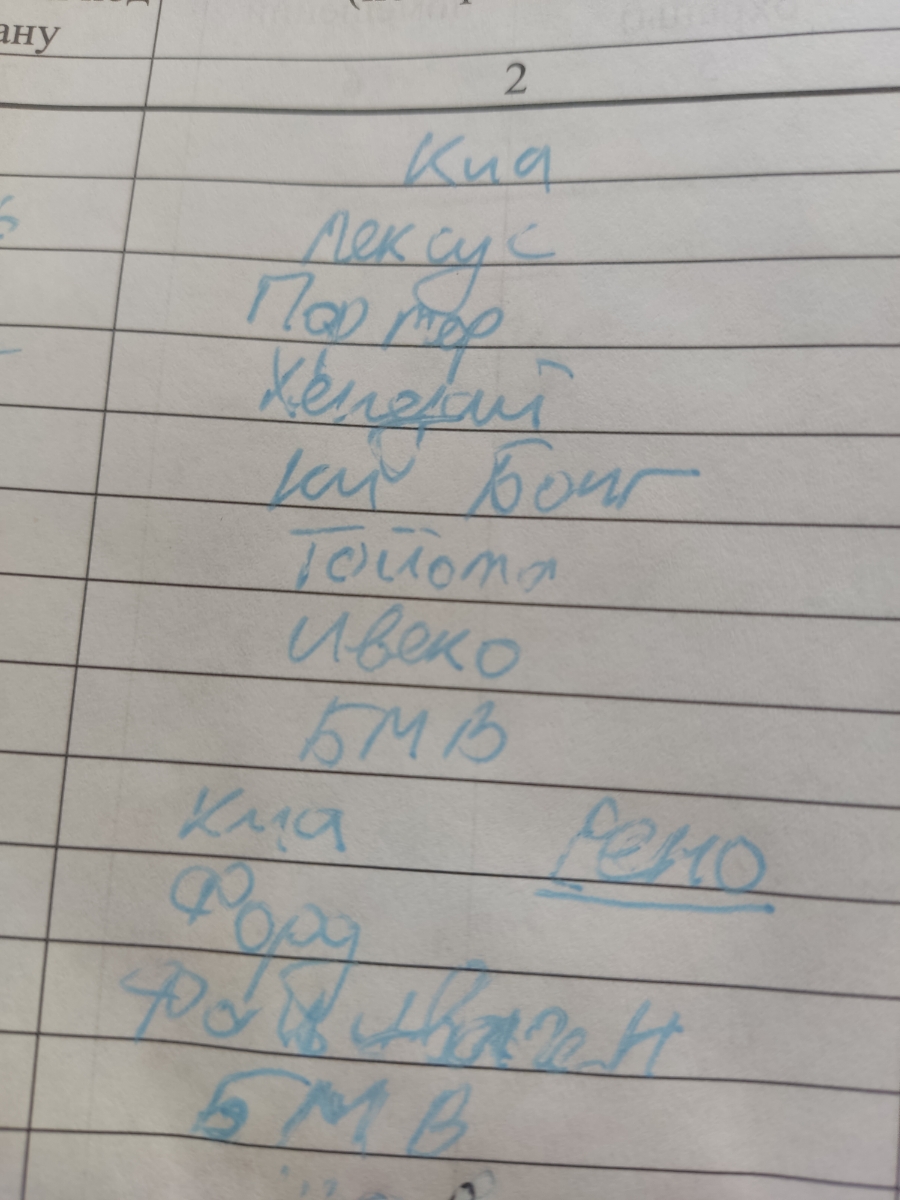 ану
2
Киа
Лексус
Портер
Хендай
Кий Бонг
Тойота
Ивеко
БМВ
Киа Рено
Форд
БМВ